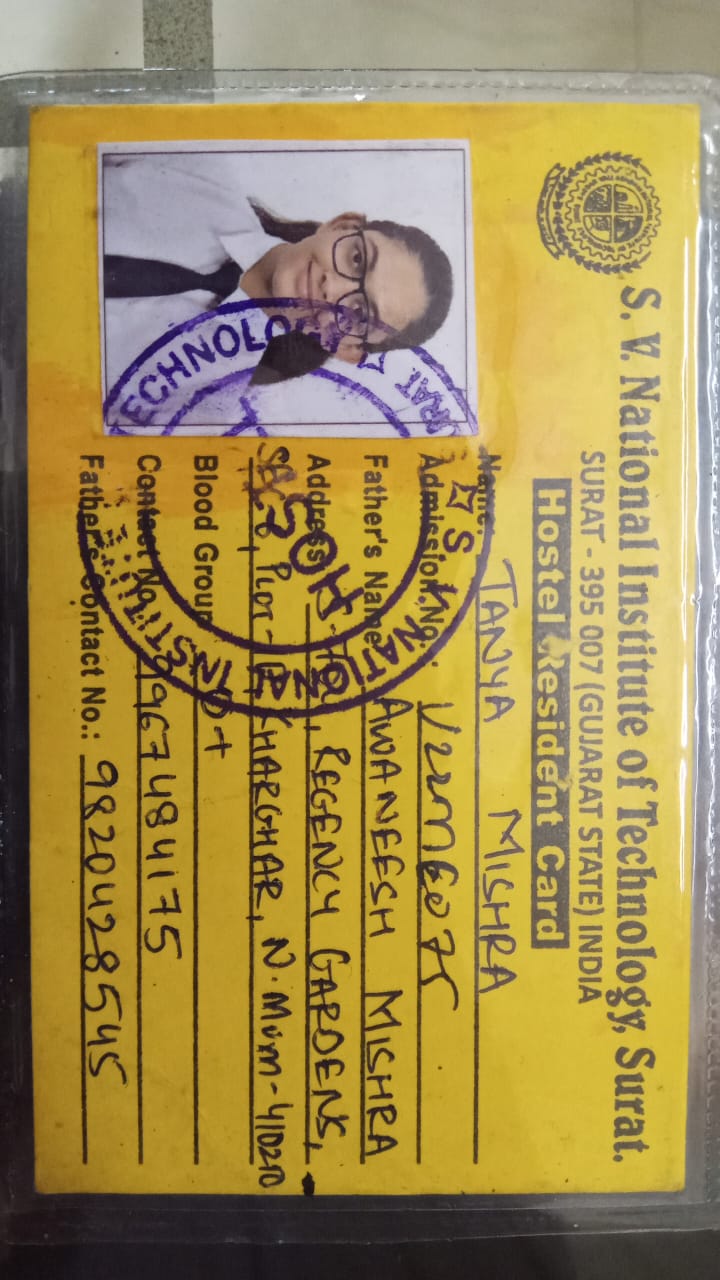 S. V. National Institute of Technology, Surat.
SURAT - 395 007 (GUJARAT STATE) INDIA
Hostel Resident Card
Name: TANYA MISHRA
Admission No.: U22ME075
Father's Name AWANEESH MISHRA
Address REGENCY GARDENS,
SEC-6, PLOT- KHARGHAR, N.MUM-410210
Blood Group
Contact No. 9967484175
Father's Contact No.: 9820428545
S V NATIONAL INSTITU
TECHNOLOGY
SURAT
HOS